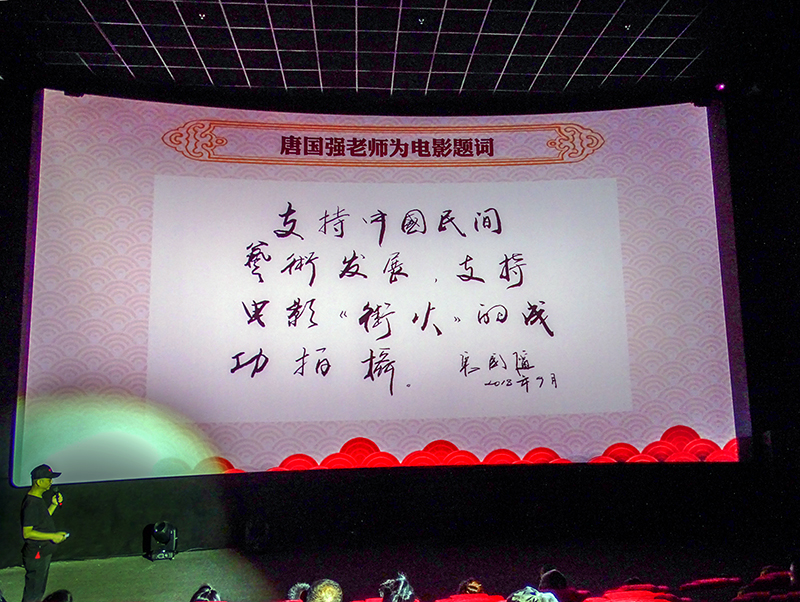 唐国强老师为电影题词
支持中國民间
藝術发展，支持
电影《街火》的成
功拍摄。
唐国强
2018年9月